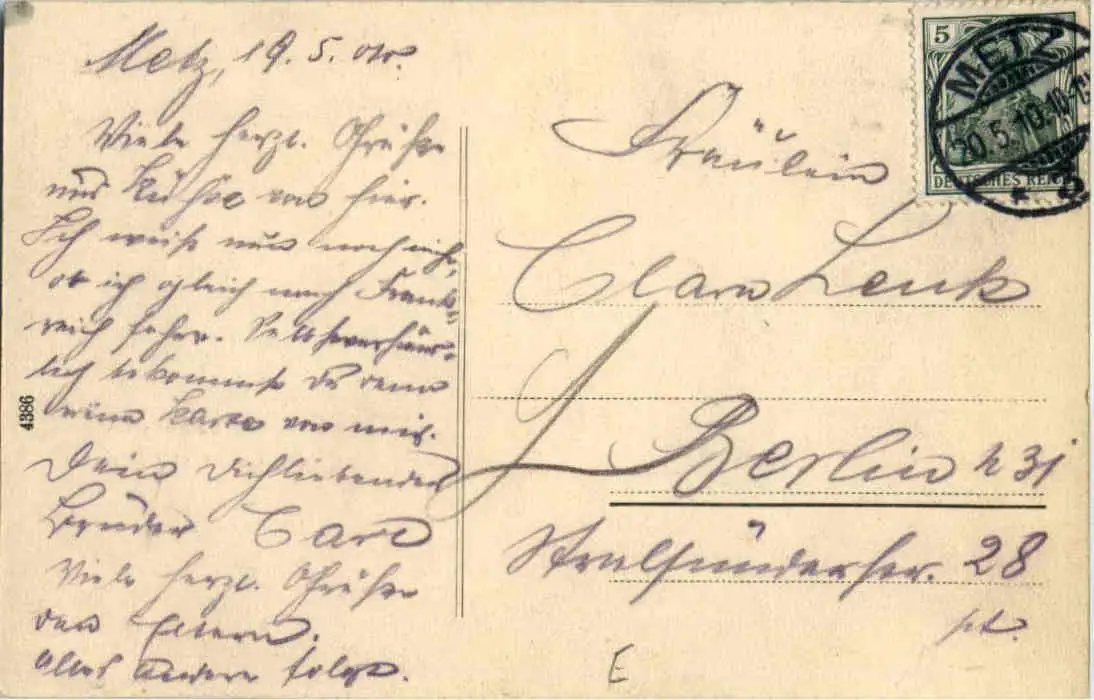 Metz, 19. 5.
Viele herzl. Grüße
und Küsse von hier.
Ich weiß nun noch nicht,
ob ich gleich nach Frank-
reich fahre. Selbstverständ-
lich bekommst Du dann
eine Karte von mir.
Dein Dichliebender
Bruder Carl
Viele herzl. Grüße
den Eltern.
Alles andere folgt.
4386
5
DEUTSCHES REICH
METZ
20.5.10.10-11
Fräulein
Clara Lenk
Berlin N 31
Stralsunderstr. 28
pt.
E